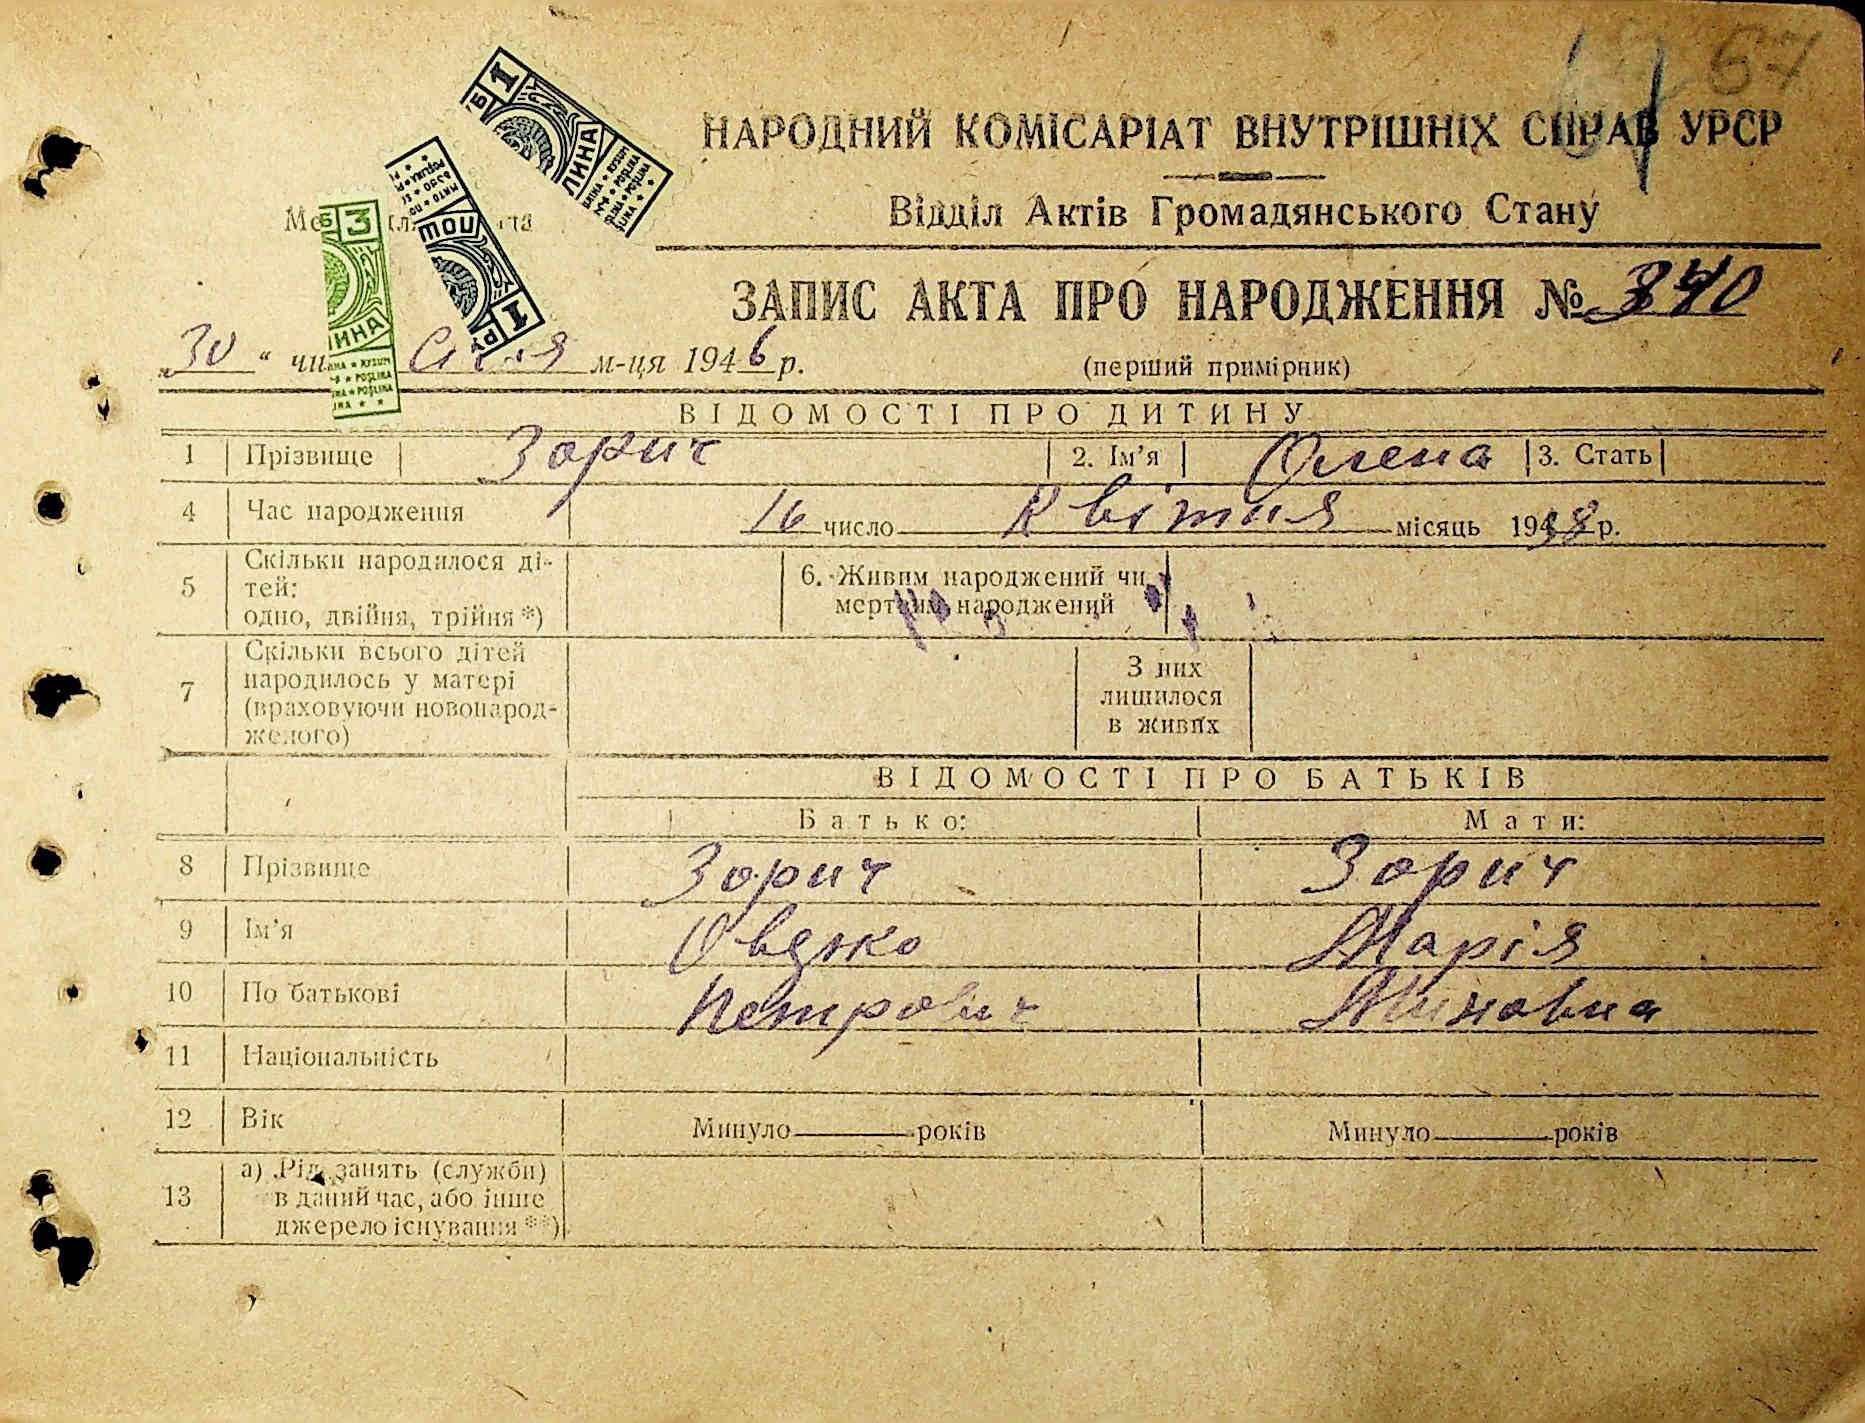 67
НАРОДНИЙ КОМІСАРІАТ ВНУТРІШНІХ СПРАВ УРСР
Відділ Актів Громадянського Стану
ЗАПИС АКТА ПРО НАРОДЖЕННЯ № 340
„30“ чи Січня м-ця 1946 р.
(перший примірник)
ВІДОМОСТІ ПРО ДИТИНУ
1 Прізвище Зорич 2. Ім'я Олена 3. Стать
4 Час народження 16 число Квітня місяць 1938 р.
5 Скільки народилося ді-
тей:
одно, двійня, трійня *)
6. Живим народжений чи
мертвим народжений
7 Скільки всього дітей
народилось у матері
(враховуючи новонарод-
желого)
З них
лишилося
в живих
ВІДОМОСТІ ПРО БАТЬКІВ
Батько: Мати:
8 Прізвище Зорич Зорич
9 Ім'я Овдяко Марія
10 По батькові Петрович Миновна
11 Національність
12 Вік Минуло років Минуло років
13 а) Рід занять (служби)
в даний час, або інше
джерело існування **)